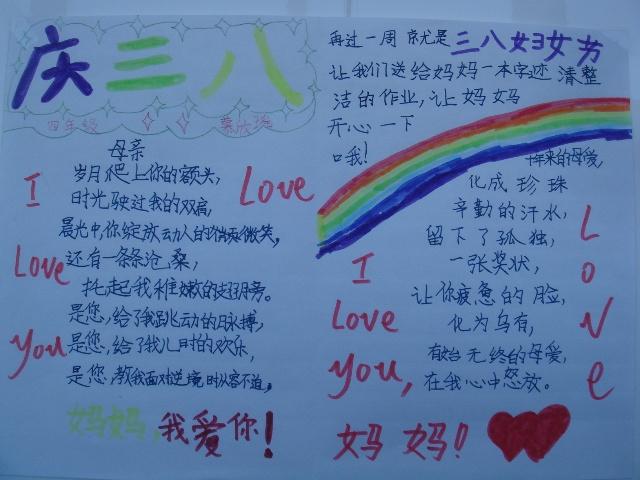 庆三八
四年级
母亲
岁月爬上你的额头,
时光驶过我的双肩,
晨光中,你绽放动人的微笑,
还有一条条沧桑,
托起我稚嫩的翅膀。
是您,给了我跳动的脉搏,
是您,给了我儿时的欢乐,
是您,教我面对逆境时从容不迫。
I
Love
Love
You
妈妈,我爱你!
再过一周 就是三八妇女节
让我们送给妈妈一本字迹 清整
洁的作业,让妈妈
开心一下
口我!
年来的母爱,
化成 珍珠
辛勤的汗水,
留下了孤独,
一张奖状,
让你疲惫的脸,
化为乌有,
有始无终的母爱,
在我心中怒放。
I
Love
You,
妈妈!
LOVe